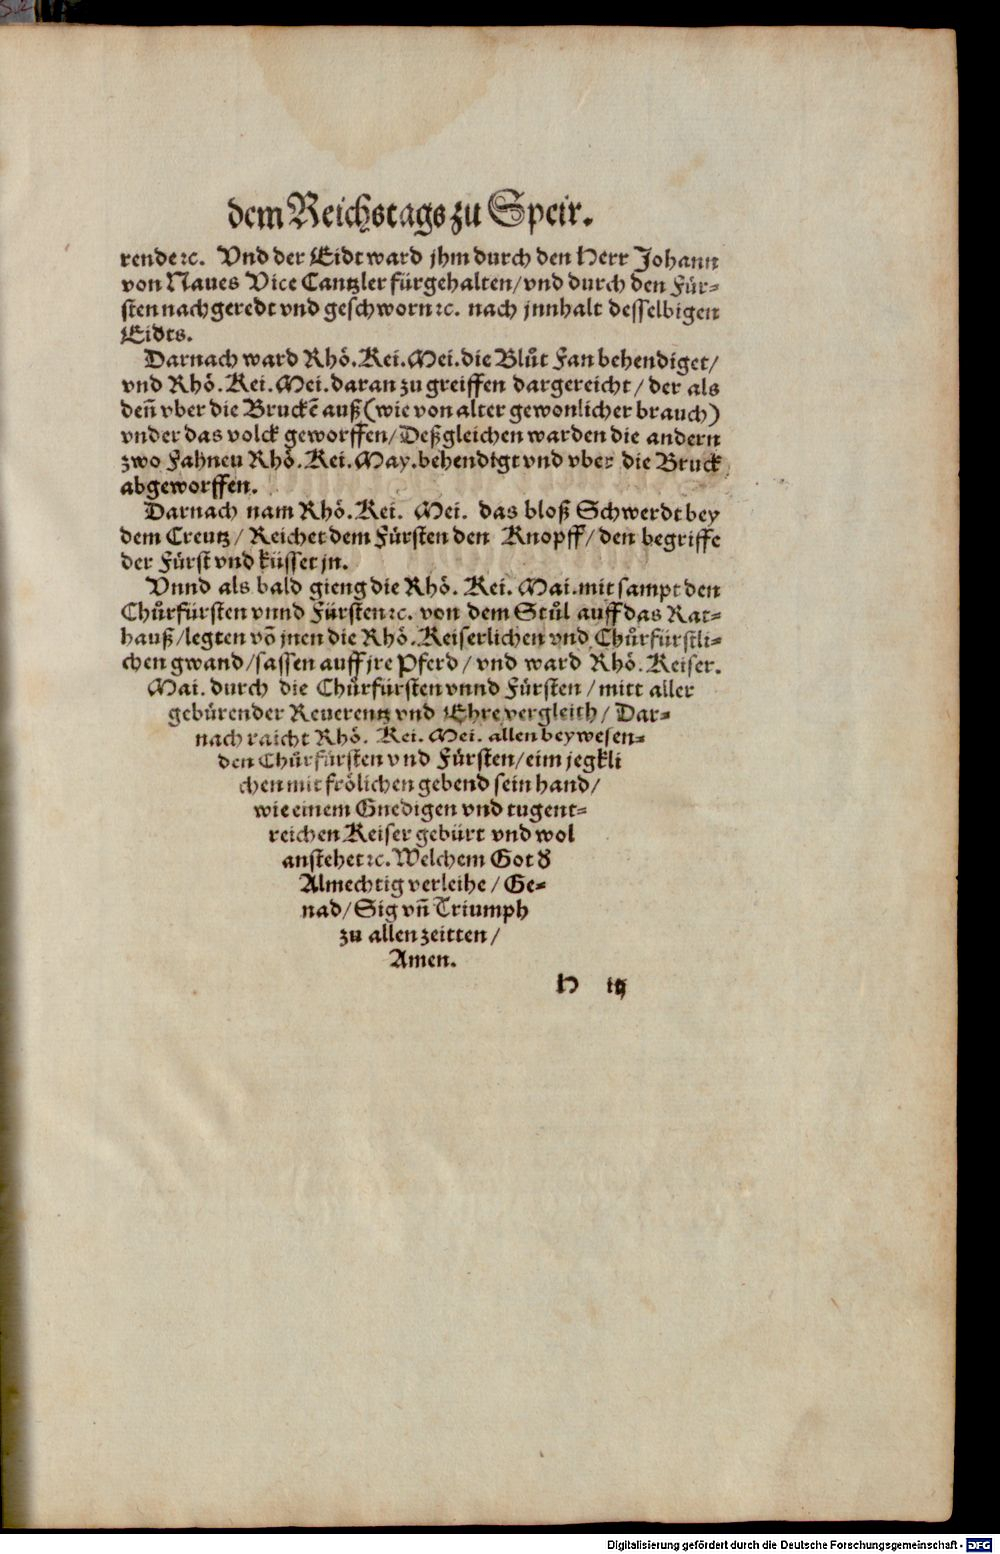 dem Reichstags zu Speir.
rende ꝛc. Vnd der Eidt ward jhm durch den Herr Johann
von Naues Vice Cantzler fürgehalten/vnd durch den Für⸗
sten nachgeredt vnd geschworn ꝛc. nach jnnhalt desselbigen
Eidts.
Darnach ward Rhö. Kei. Mei. die Blůt Fan behendiget/
vnd Rhö. Kei. Mei. daran zu greiffen dargereicht/ der als
deñ vber die Bruckē auß (wie von alter gewonlicher brauch)
vnder das volck geworffen/ Deßgleichen warden die andern
zwo Fahneu Rhö. Kei. May. behendigt vnd vber die Bruck
abgeworffen.
Darnach nam Rhö. Kei. Mei. das bloß Schwerdt bey
dem Creutz/ Reichet dem Fürsten den Knopff/ den begriffe
der Fürst vnd küsset jn.
Vnnd als bald gieng die Rhö. Kei. Mai. mit sampt den
Chůrfürsten vnnd Fürsten ꝛc. von dem Stůl auff das Rat⸗
hauß/legten vō jnen die Rhö. Keiserlichen vnd Chůrfürstli⸗
chen gwand/sassen auff jre Pferd/ vnd ward Rhö. Keiser.
Mai. durch die Chůrfürsten vnnd Fürsten/ mitt aller
gebürender Reuerentz vnd Ehre vergleith/ Dar⸗
nach raicht Rhö. Kei. Mei. allen beywesen⸗
den Chůrfürsten vnd Fürsten/ eim jegkli
chen mit frölichen gebend sein hand/
wie einem Gnedigen vnd tugent⸗
reichen Keiser gebürt vnd wol
anstehet ꝛc. Welchem Got 8
Almechtig verleihe/ Ge⸗
nad/ Sig vñ Triumph
zu allen zeitten/
Amen.
H iij
Digitalisierung gefördert durch die Deutsche Forschungsgemeinschaft - DFG